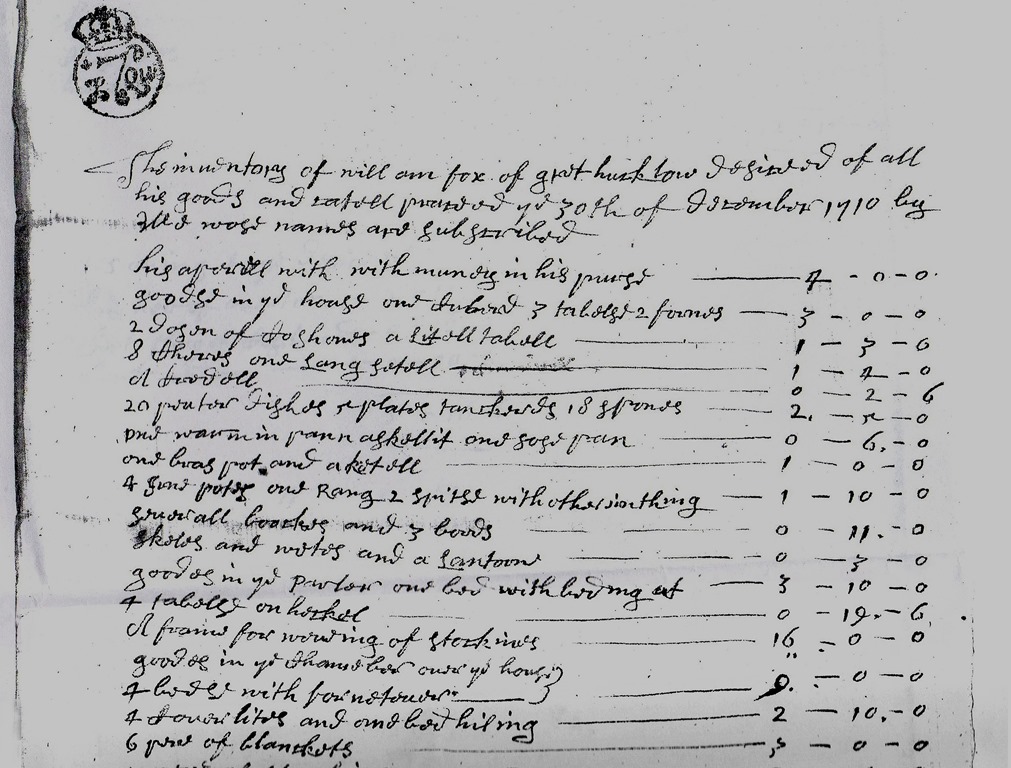 The inventory of will am fox of gret hucklow desised of all
his goods and catell praesed ye 30th of december 1710 by
Use wose names are subscribed
his aperell with with muney in his purse 4 - 0 - 0
goodse in ye house one cuberd 3 tabelse 2 formes 3 - 0 - 0
2 dosen of coshones a litell tabell 1 - 3 - 0
8 cheres one lang setell 1 - 4 - 0
A credell 0 - 2 - 6
20 peuter dishes 5 plates tanckerds 18 spones 2 - 5 - 0
one warmin pann a skellit one pan 0 - 6 - 0
one bras pot and a ketell 1 - 0 - 0
4 potes one Rang 2 spitse with other 1 - 10 - 0
severall and 3 0 - 11 - 0
and and a 0 - 3 - 0
goodes in ye Parler one bed with beding at 3 - 10 - 0
4 tabelse on 0 - 19 - 6
A frame for woveing of stockines 16 - 0 - 0
goodes in ye chamber over ye house
4 bedse with fornetouer 9 - 0 - 0
4 coverlites and one bed hiling 2 - 10 - 0
6 pere of blanckets - 0 - 0